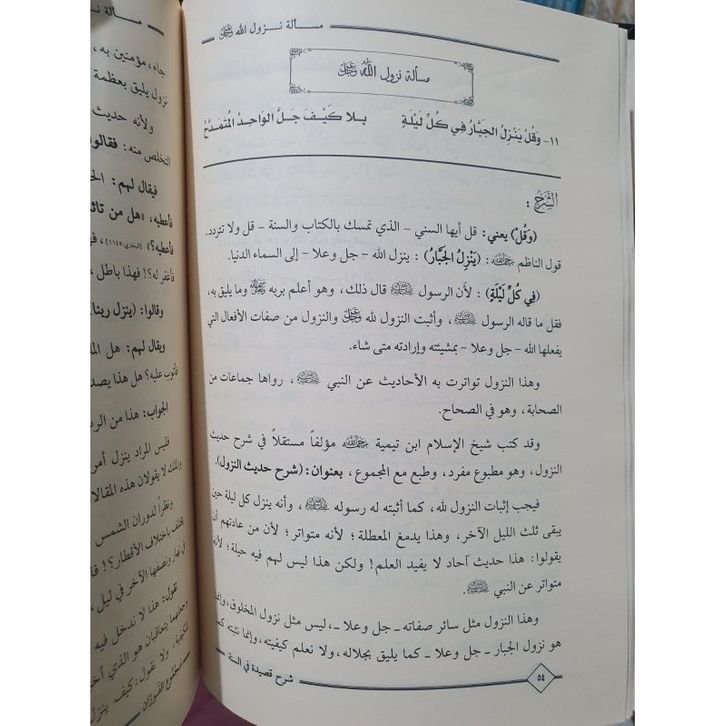 مسألة نزول الله ﷻ
مسألة نزول الله ﷻ
١١- وَقُلْ يَنْزِلُ الجَبَّارُ فِي كُلِّ لَيْلَةٍ بلا كَيْفَ جَلَّ الوَاحِدُ المُتَمَدَّحُ
الشَّرْحُ :
(وَقُلْ) يعني: قل أيها السني – الذي تمسك بالكتاب والسنة – قل ولا تتردد..
قول الناظم رحمه الله: (يَنْزِلُ الجَبَّارُ) : ينزل الله – جل وعلا – إلى السماء الدنيا.
(فِي كُلِّ لَيْلَةٍ) : لأن الرسول ﷺ قال ذلك، وهو أعلم بربه ﷻ وما يليق به،
فقل ما قاله الرسول ﷺ، وأثبت النزول لله ﷻ والنزول من صفات الأفعال التي
يفعلها الله – جل وعلا – بمشيئته وإرادته متى شاء.
وهذا النزول تواترت به الأحاديث عن النبي ﷺ، رواها جماعات من
الصحابة، وهو في الصحاح.
وقد كتب شيخ الإسلام ابن تيمية رحمه الله مؤلفاً مستقلاً في شرح حديث
النزول، وهو مطبوع مفرد، وطبع مع المجموع، بعنوان: (شرح حديث النزول).
فيجب إثبات النزول لله، كما أثبته له رسوله ﷺ، وأنه ينزل كل ليلة حين
يبقى ثلث الليل الآخر، وهذا يدمغ المعطلة؛ لأنه متواتر؛ لأن من عادتهم أن
يقولوا: هذا حديث آحاد لا يفيد العلم! ولكن هذا ليس لهم فيه حيلة؛ لأنه
متواتر عن النبي ﷺ.
وهذا النزول مثل سائر صفاته ـ جل وعلا ـ، ليس مثل نزول المخلوق، وإنما
هو نزول الجبار ـ جل وعلا ـ كما يليق بجلاله، ولا نعلم كيفيته، وإنما نثبته كما
٥٤
شرح قصيدة في السنة
مسألة نـ
جاء، مؤمنين به،
نزول يليق بعظمة
ولأنه حديث
التخلص منه: فقالوا
فيقال لهم:
فأعطيه، «هل من تائب
فأغفر له؟! فهذا باطل،
وقالوا: (ينزل ربنا)
ويقال لهم: هل
فأتوب عليه؟ هل هذا يصد
الجواب: هذا من الر
فليس المراد ينزل أمر
وتلك لا يقولان هذه المقالا
ونظراً لدوران الشمس
تختلف باختلاف الأقطار؟!
نقول: هذا لا ندخل فيه